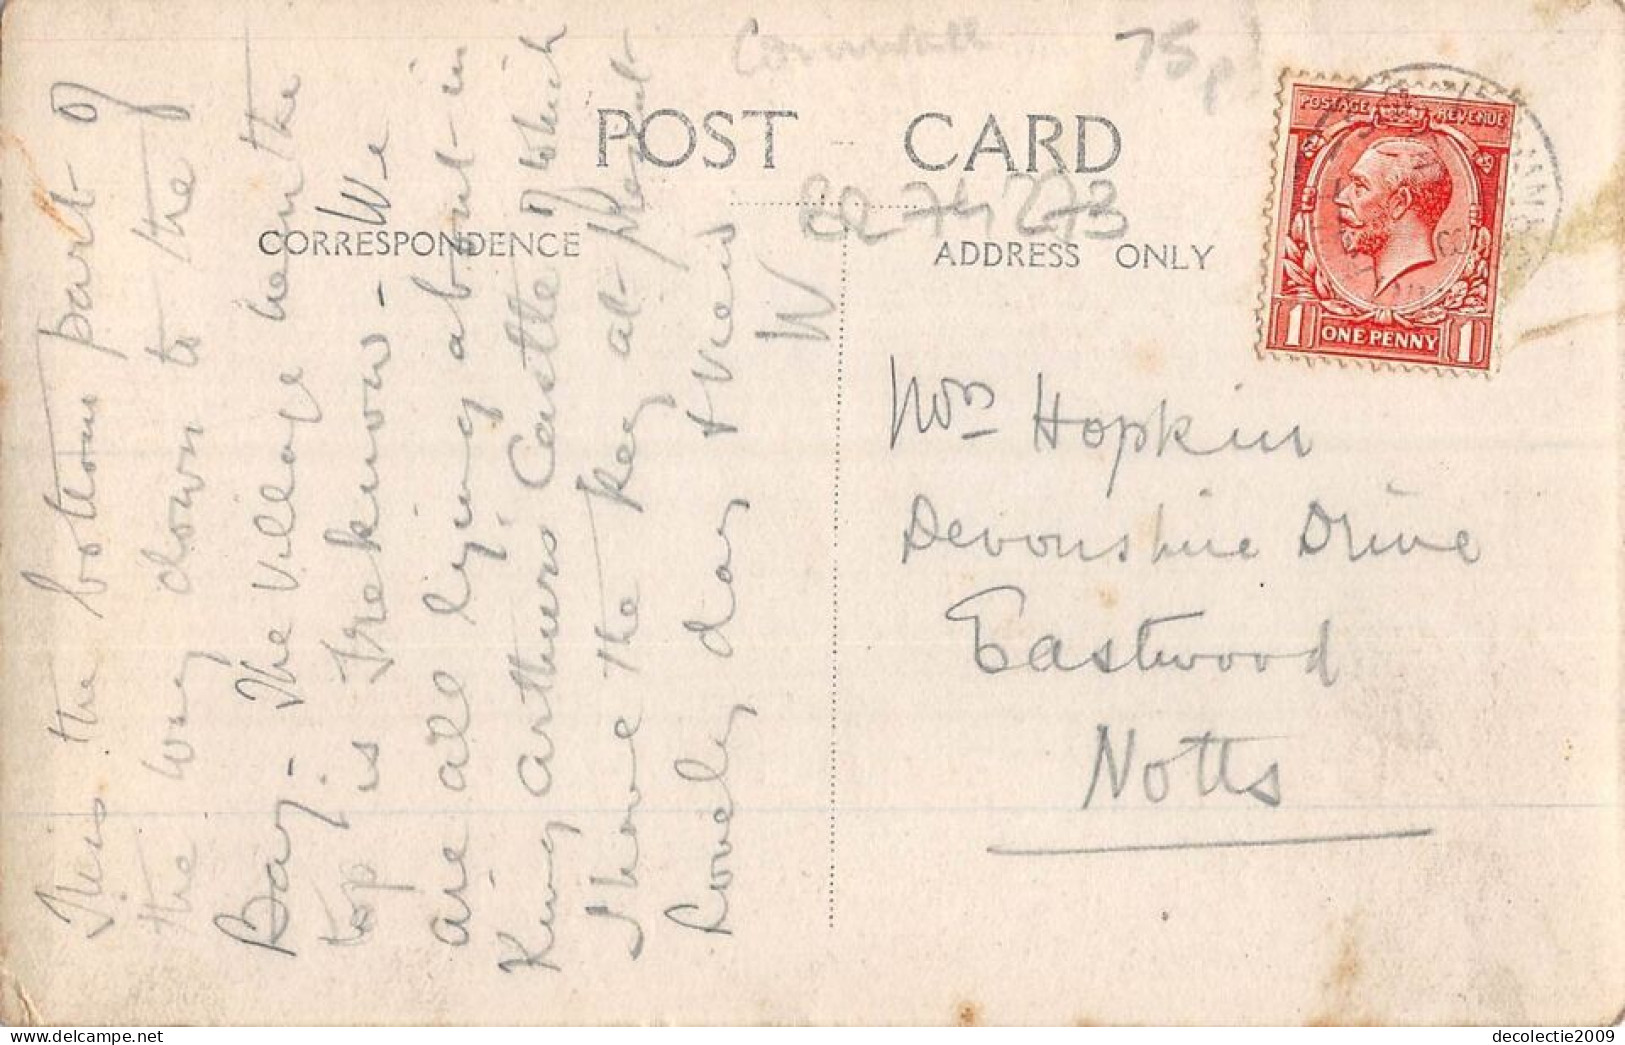 Cornwall
75p
POST CARD
82 74 273
CORRESPONDENCE
ADDRESS ONLY
POSTAGE REVENUE
1 ONE PENNY 1
This the bottom part of
the way down to the
Bay - The Village hem the
top is Treknow - We
are all lying about in
King Arthurs Castle of which
I have the key at present
Lovely day & views
W
Mrs Hopkin
Devonshire Drive
Eastwood
Notts
decolectie2009